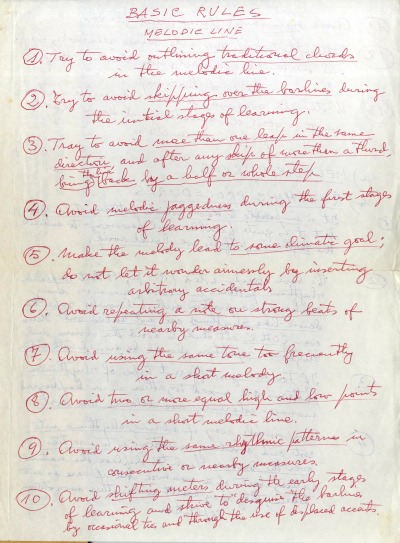 BASIC RULES
MELODIC LINE
1. Try to avoid outlining traditional chords
in the melodic line.
2. Try to avoid skipping over the barlines during
the initial stages of learning.
3. Tray to avoid more than one leap in the same
direction, and after any skip of more than a third,
bring the line back by a half or whole step
4. Avoid melodic jaggedness during the first stages
of learning.
5. Make the melody lead to some climatic goal;
do not let it wonder aimessly by inserting
arbitrary accidentals
6. Avoid repeating a note on strong beats of
nearby measures.
7. Avoid using the same tone too frequently
in a short melody.
8. Avoid two or more equal high and low points
in a short melodic line.
9. Avoid using the same rhythmic patterns in
consecutive or nearby measures.
10. Avoid shifting meters during the early stages
of learning and strive to "desguise" the barlines
by occasional ties and through the use of displaced accents.